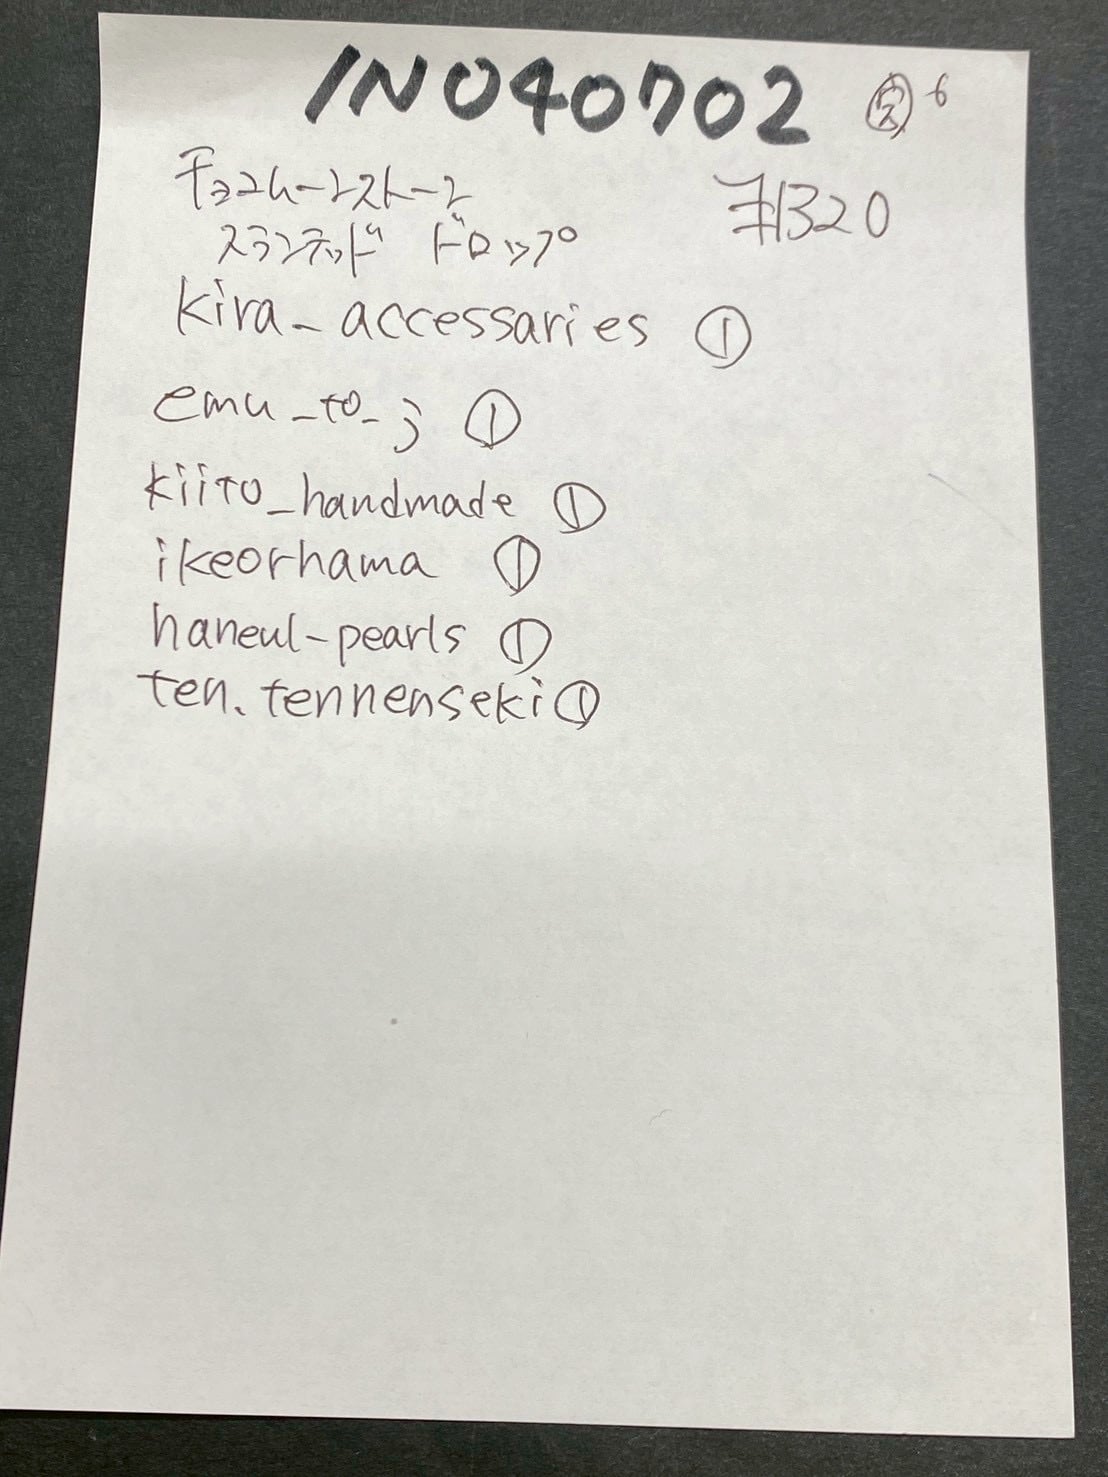 IN040702 ㋜-6
チョコムーンストーン ¥1320
スランテッド ドロップ
kira_accessaries ①
emu_to_j ①
kiito_handmade ①
ikeorhama ①
haneul-pearls ①
ten.tennenseki ①